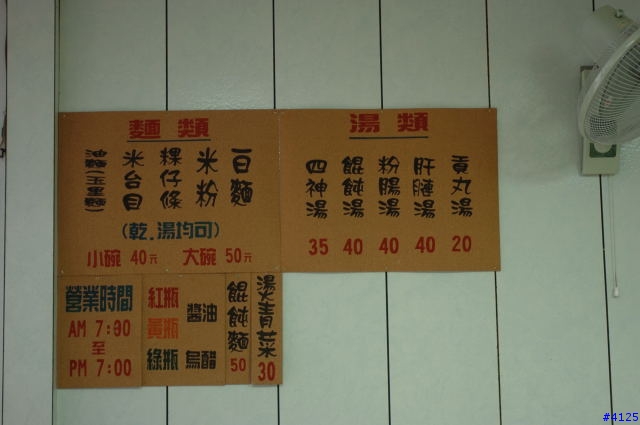 麵類
白麵
米粉
粿仔條
米台目
油麵(王車麵)
(乾.湯均可)
小碗 40元 大碗 50元
湯類
貢丸湯 20
肝腱湯 40
粉腸湯 40
餛飩湯 40
四神湯 35
營業時間
AM 7:00
至
PM 7:00
紅瓶 醬油
黃瓶
綠瓶 烏醋
餛飩麵 50
燙青菜 30
#4125